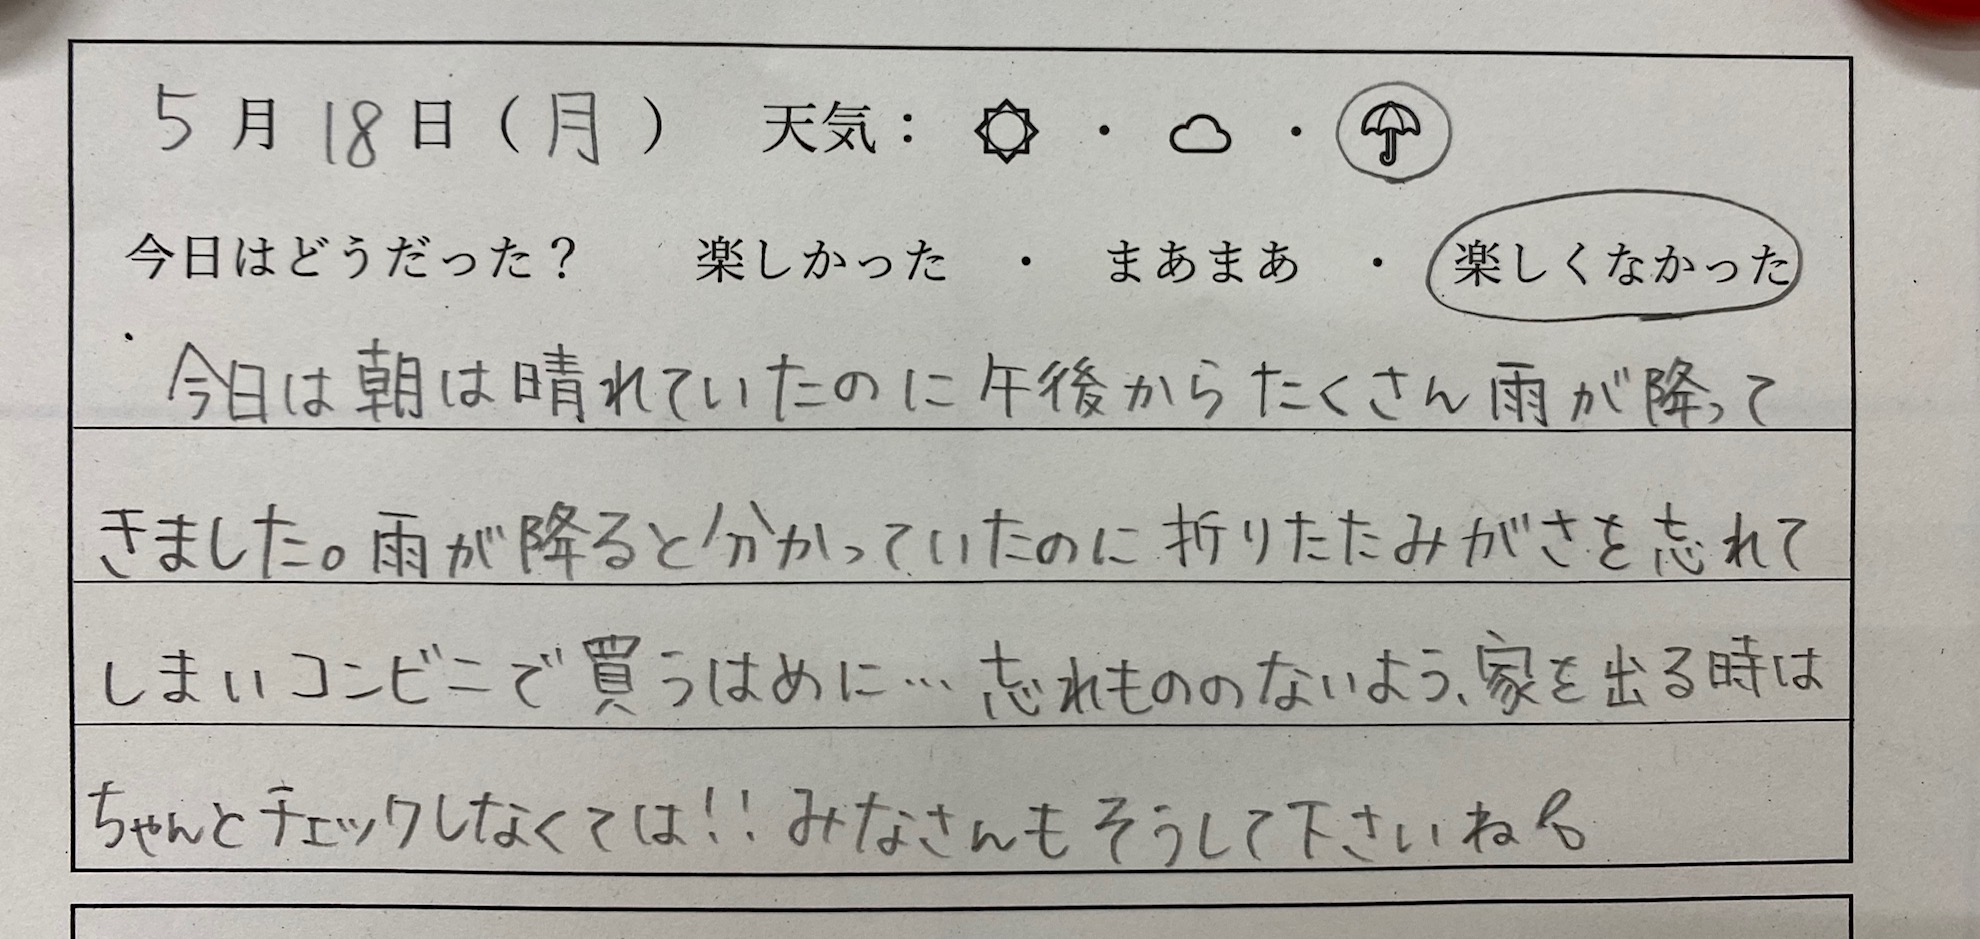 5月18日(月) 天気: ・ ・
今日はどうだった? 楽しかった ・ まあまあ ・ 楽しくなかった
今日は朝は晴れていたのに午後からたくさん雨が降って
きました。雨が降ると分かっていたのに折りたたみがさを忘れて
しまいコンビニで買うはめに…忘れもののないよう、家を出る時は
ちゃんとチェックしなくては!!みなさんもそうして下さいね